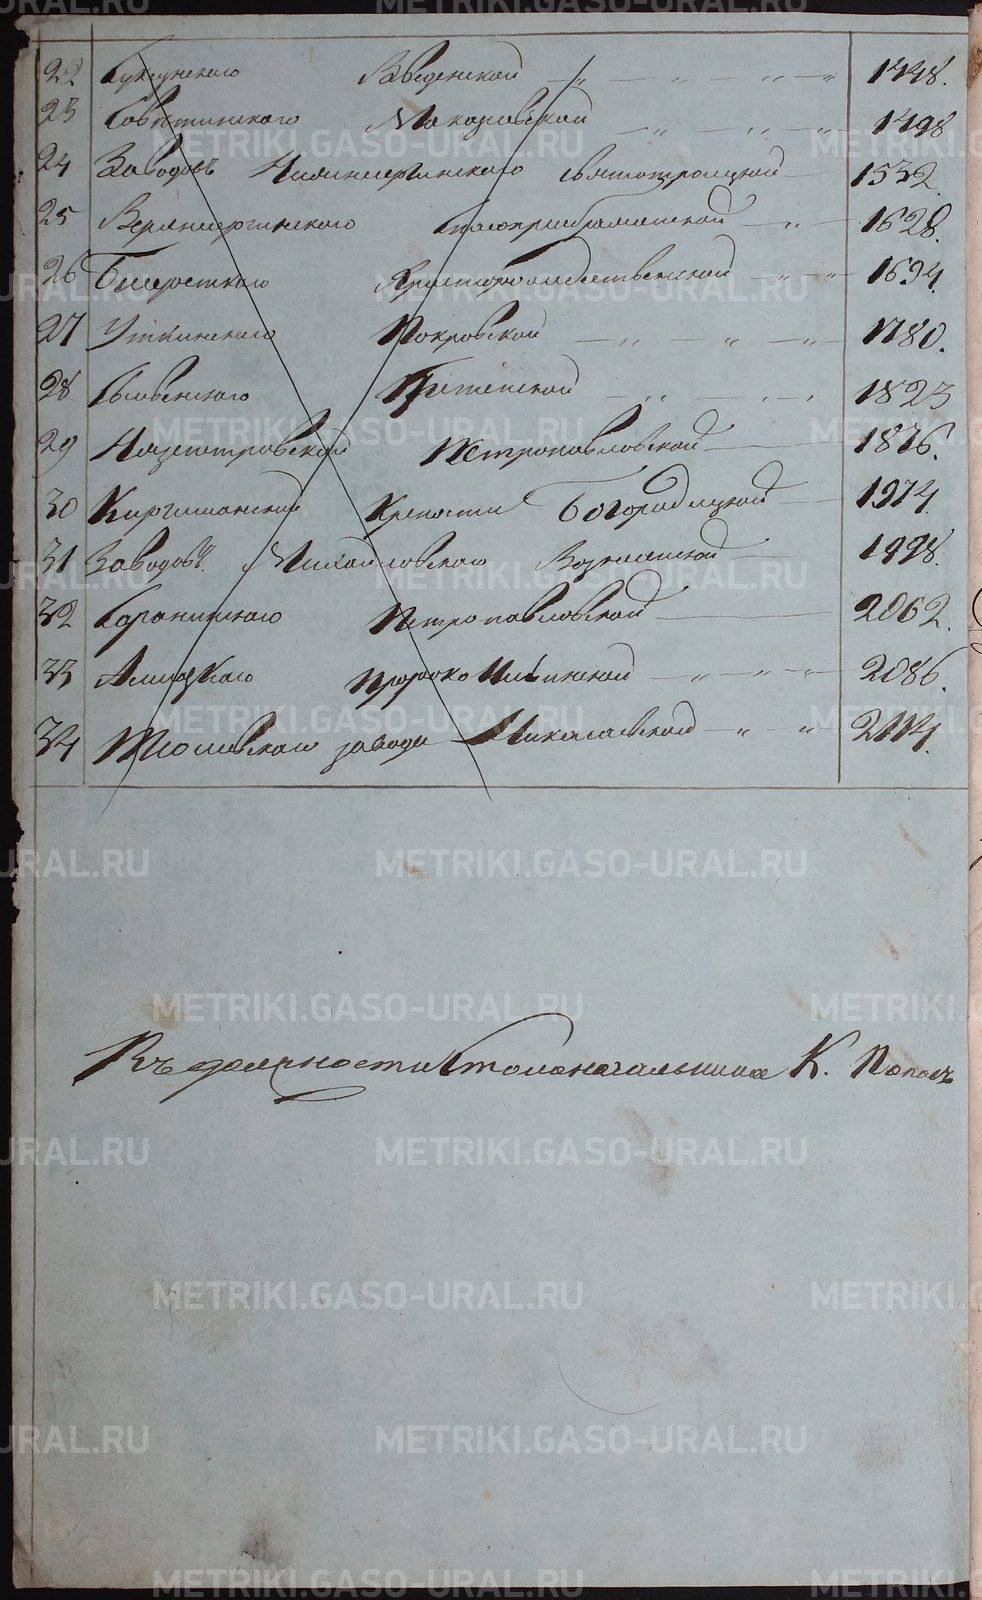 22 Сухунского Введенской — „ — „ — „ — „ 1448.
23 Совѣтинского Макаровской — „ — „ — „ 1498
24 Заводовъ Нижнесергинского Святотроицкой — 1532.
25 Верхнесергинского Спасопреображенской — „ — 1628.
26 Бисертского Христорождественской — „ — „ 1694.
27 Уткинского Покровской — „ — „ — „ — 1780.
28 Сылвенского Срѣтенской — „ — „ — 1823
29 Нязепетровской Петропавловской — 1876.
30 Киргишанской Крепости Богородицкой — 1974.
31 Заводовъ. Михайловского Вознесенской — 1998.
32 Саранинского Петропавловской — 2062.
33 Алмазского Пророко Ильинской — „ — „ — 2086.
34 Тюшевского завода Николаевской — „ — „ 2114.
Къ должности Столоначальника К. Поповъ
METRIKI.GASO-URAL.RU